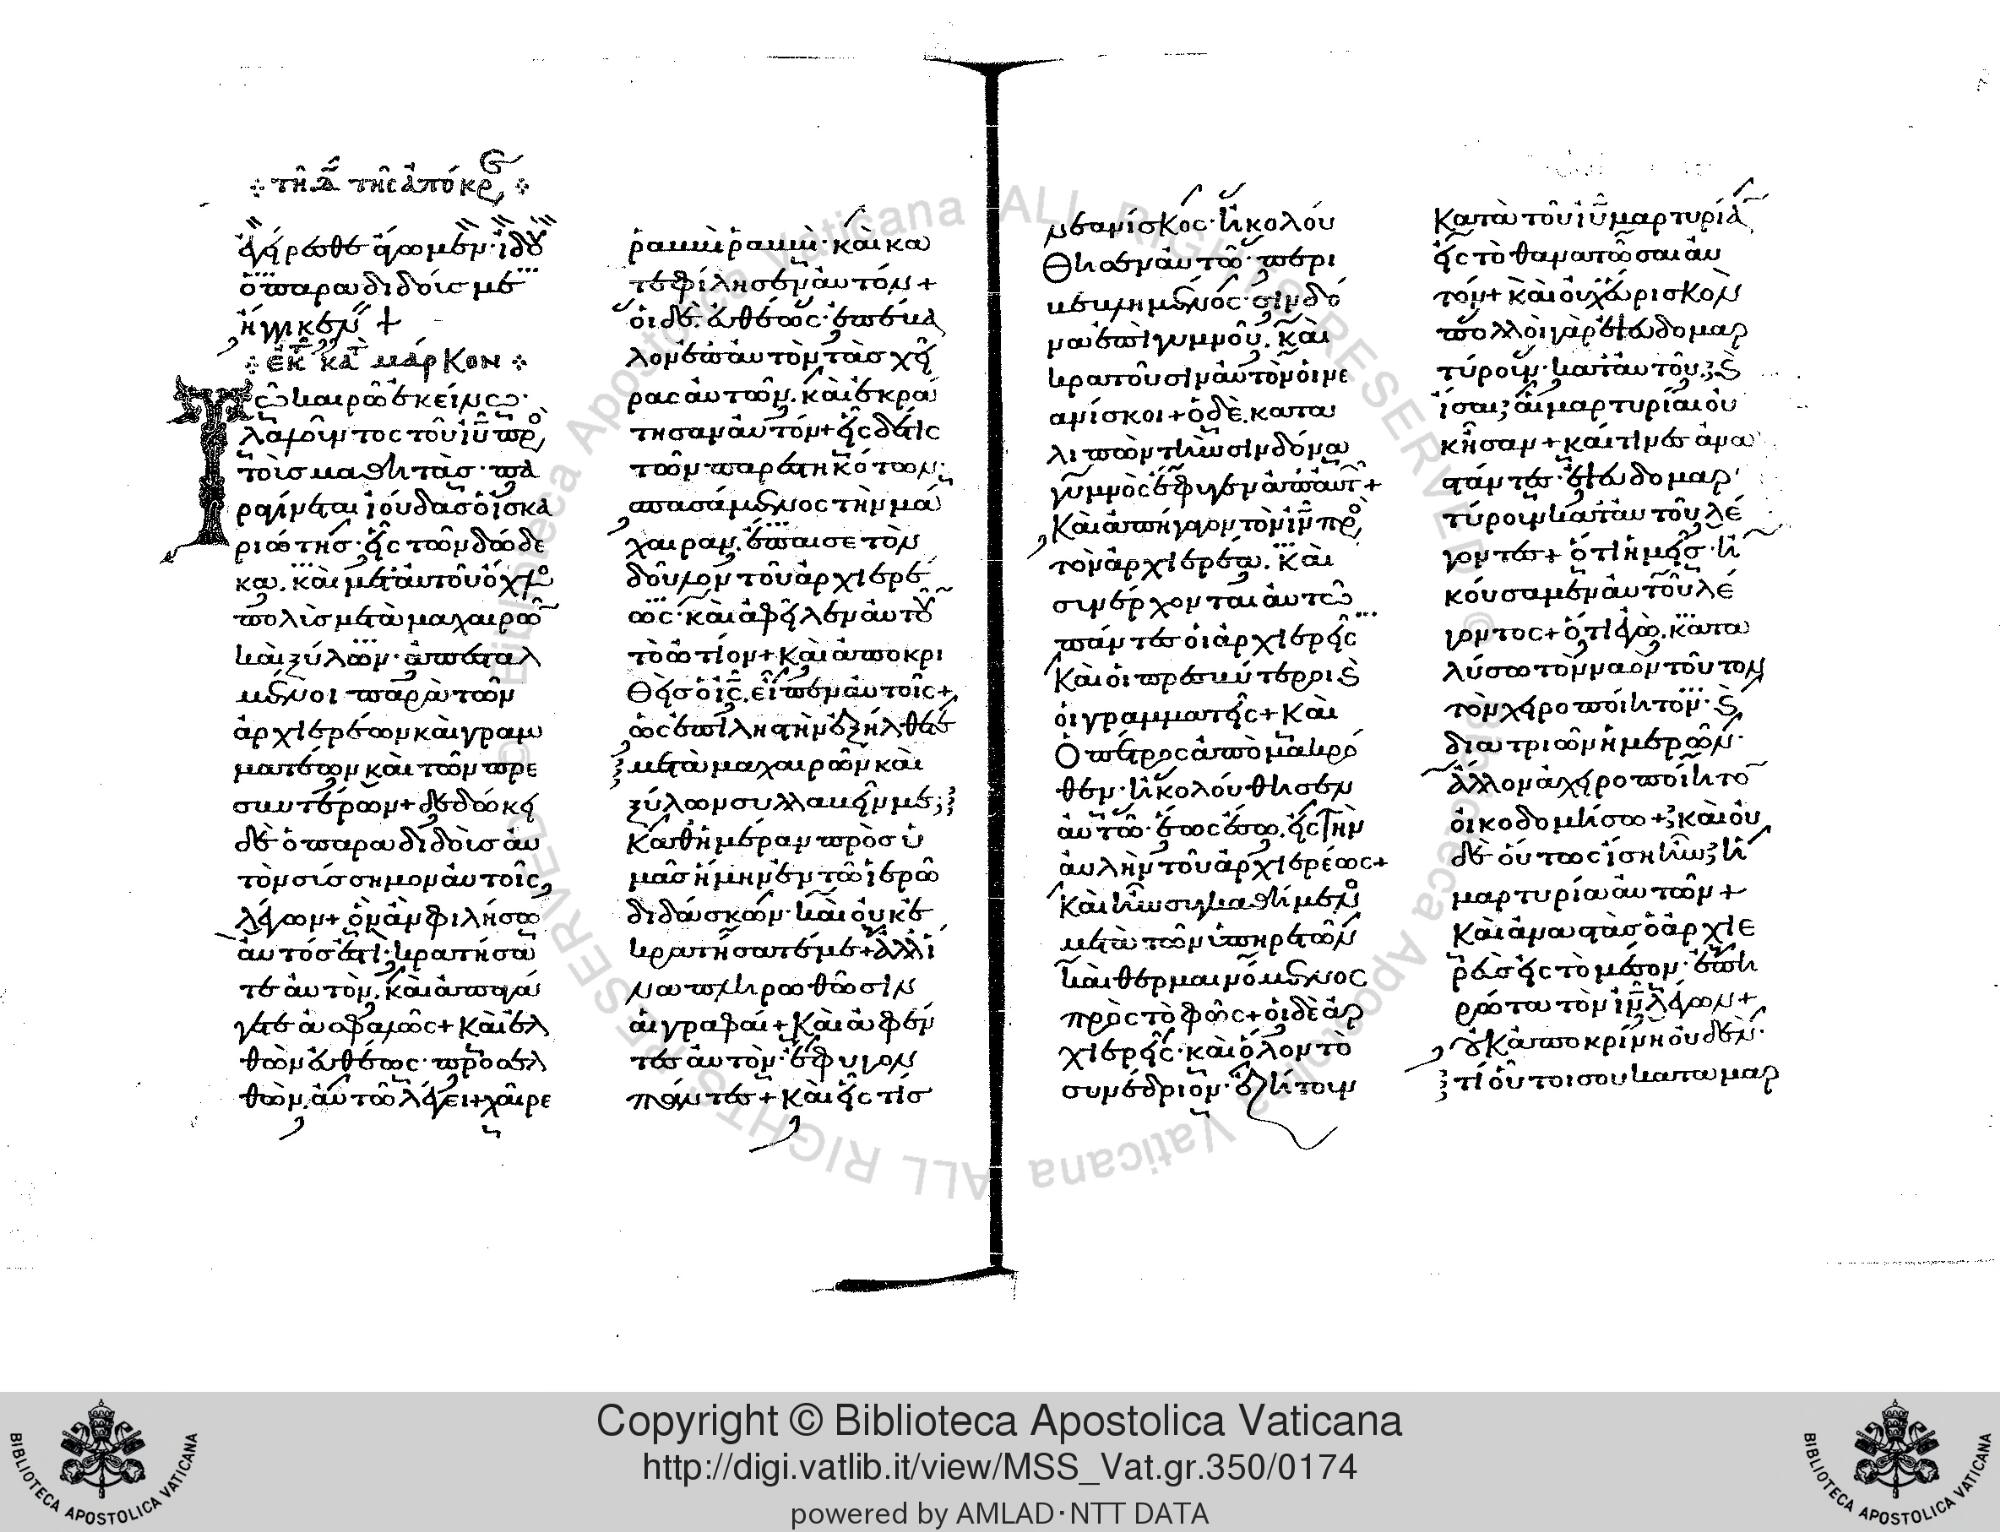 τῆ δ̅ τῆς ἀπόκρ
ἐγείρεσθε ἄγωμεν· ἰδοὺ
ὁ παραδιδούς με
ἤγγικεν +
ἐκ κατ μάρκον
Τῶ καιρῶ ἐκείνω·
λαλοῦντος τοῦ ἰῦ πρ
τοῖς μαθητὰς· πα
ραγίνεται ἰούδας ὁ ἰσκα
ριώτης· εἷς τῶν δώδε
κα. καὶ μετ αὐτοῦ ὄχλο
πολὺς μετὰ μαχαιρῶ
καὶ ξύλων· ἀπεσταλ
μένοι παρὰ τῶν
ἀρχιερέων καὶ γραμ
ματέων καὶ τῶν πρε
σβυτέρων + δεδώκει
δὲ ὁ παραδιδοὺς αὐ
τὸν σύσσημον αὐτοῖς
λέγων + ὃν ἂν φιλήσω
αὐτός ἐστι· κρατήσα
τε αὐτὸν. καὶ ἀπαγά
γετε ἀσφαλῶς + Καὶ ἐλ
θὼν εὐθέως· προσελ
θὼν αὐτῶ λέγει + χαῖρε
ραββὶ ραββὶ· καὶ κα
τεφίλησεν αὐτόν +
οἱ δὲ. εὐθέως· ἐπέβα
λον ἐπ αὐτὸν τὰς χεῖ
ρας αὐτῶν. καὶ ἐκρά
τησαν αὐτόν + εἷς δέ τις
τῶν παρεστηκότων·
σπασάμενος τὴν μά
χαιραν. ἔπαισε τὸν
δοῦλον τοῦ ἀρχιερέ
ως· καὶ ἀφεῖλεν αὐτοῦ
τὸ ὠτίον + Καὶ ἀποκρι
θεὶς ὁ ἰς. εἶπεν αὐτοῖς +
ὡς ἐπὶ ληστὴν ἐξήλθετε
μετὰ μαχαιρῶν καὶ
ξύλων συλλαβεῖν με;
Καθ ἡμέραν πρὸς ὑ
μᾶς ἤμην ἐν τῶ ἱερῶ
διδάσκων· καὶ οὐκ ἐ
κρατήσατέ με + ἀλλ ἵ
να πληρωθῶσιν
αἱ γραφαί + Καὶ ἀφέν
τες αὐτὸν· ἔφυγον
πάντες + Καὶ εἷς τίς
νεανίσκος· ἠκολού
θησεν αὐτῶ· περι
βεβλημένος· σινδό
να ἐπὶ γυμνοῦ. καὶ
κρατοῦσιν αὐτὸν οἱ νε
ανίσκοι + ὁ δὲ. κατα
λιπὼν τὴν σινδόνα
γυμνὸς ἔφυγεν ἀπ αὐτ +
Καὶ ἀπήγαγον τὸν ἰν πρ
τὸν ἀρχιερέα. Καὶ
συνέρχονται αὐτῶ
πάντες οἱ ἀρχιερεῖς
Καὶ οἱ πρεσβύτεροι ϗ
οἱ γραμματεῖς + Καὶ
Ὁ πέτρος ἀπὸ μακρό
θεν· ἠκολούθησεν
αὐτῶ· ἕως ἔσω. εἰς τὴν
αὐλὴν τοῦ ἀρχιερέως +
Καὶ ἦν συγκαθήμενο
μετὰ τῶν ὑπηρετῶν
καὶ θερμαινόμενος
πρὸς τὸ φῶς + οἱ δὲ ἀρ
χιερεῖς· καὶ ὅλον τὸ
συνέδριον· ἐζήτουν
Κατὰ τοῦ ἰῦ μαρτυρίαν
εἰς τὸ θανατῶσαι αὐ
τόν + καὶ οὐχ εὕρισκον
πολλοὶ γὰρ ἐψευδομαρ
τύρουν· κατ αὐτοῦ. ϗ
ἴσαι αἱ μαρτυρίαι οὐ
κ ἦσαν + καί τινες ἀνα
στάντες· ἐψευδομαρ
τύρουν κατ αὐτοῦ λέ
γοντες + ὅτι ἡμεῖς· ἠ
κούσαμεν αὐτοῦ λέ
γοντος + ὅτι ἐγὼ. κατα
λύσω τὸν ναὸν τοῦτον
τὸν χειροποίητον· ϗ
διὰ τριῶν ἡμερῶν·
ἄλλον ἀχειροποίητον
οἰκοδομήσω + καὶ οὐ
δὲ οὕτως ἴση ἦν ἡ
μαρτυρία αὐτῶν +
Καὶ ἀναστὰς ὁ ἀρχιε
ρεὺς εἰς τὸ μέσον· ἐπη
ρώτα τὸν ἰν λέγων +
οὐκ ἀποκρίνη οὐδέν·
τί οὗτοι σου καταμαρ
Copyright © Biblioteca Apostolica Vaticana
http://digi.vatlib.it/view/MSS_Vat.gr.350/0174
powered by AMLAD·NTT DATA
BIBLIOTECA APOSTOLICA VATICANA
BIBLIOTECA APOSTOLICA VATICANA
© Biblioteca Apostolica Vaticana ALL RIGHTS RESERVED
© Biblioteca Apostolica Vaticana ALL RIGHTS RESERVED